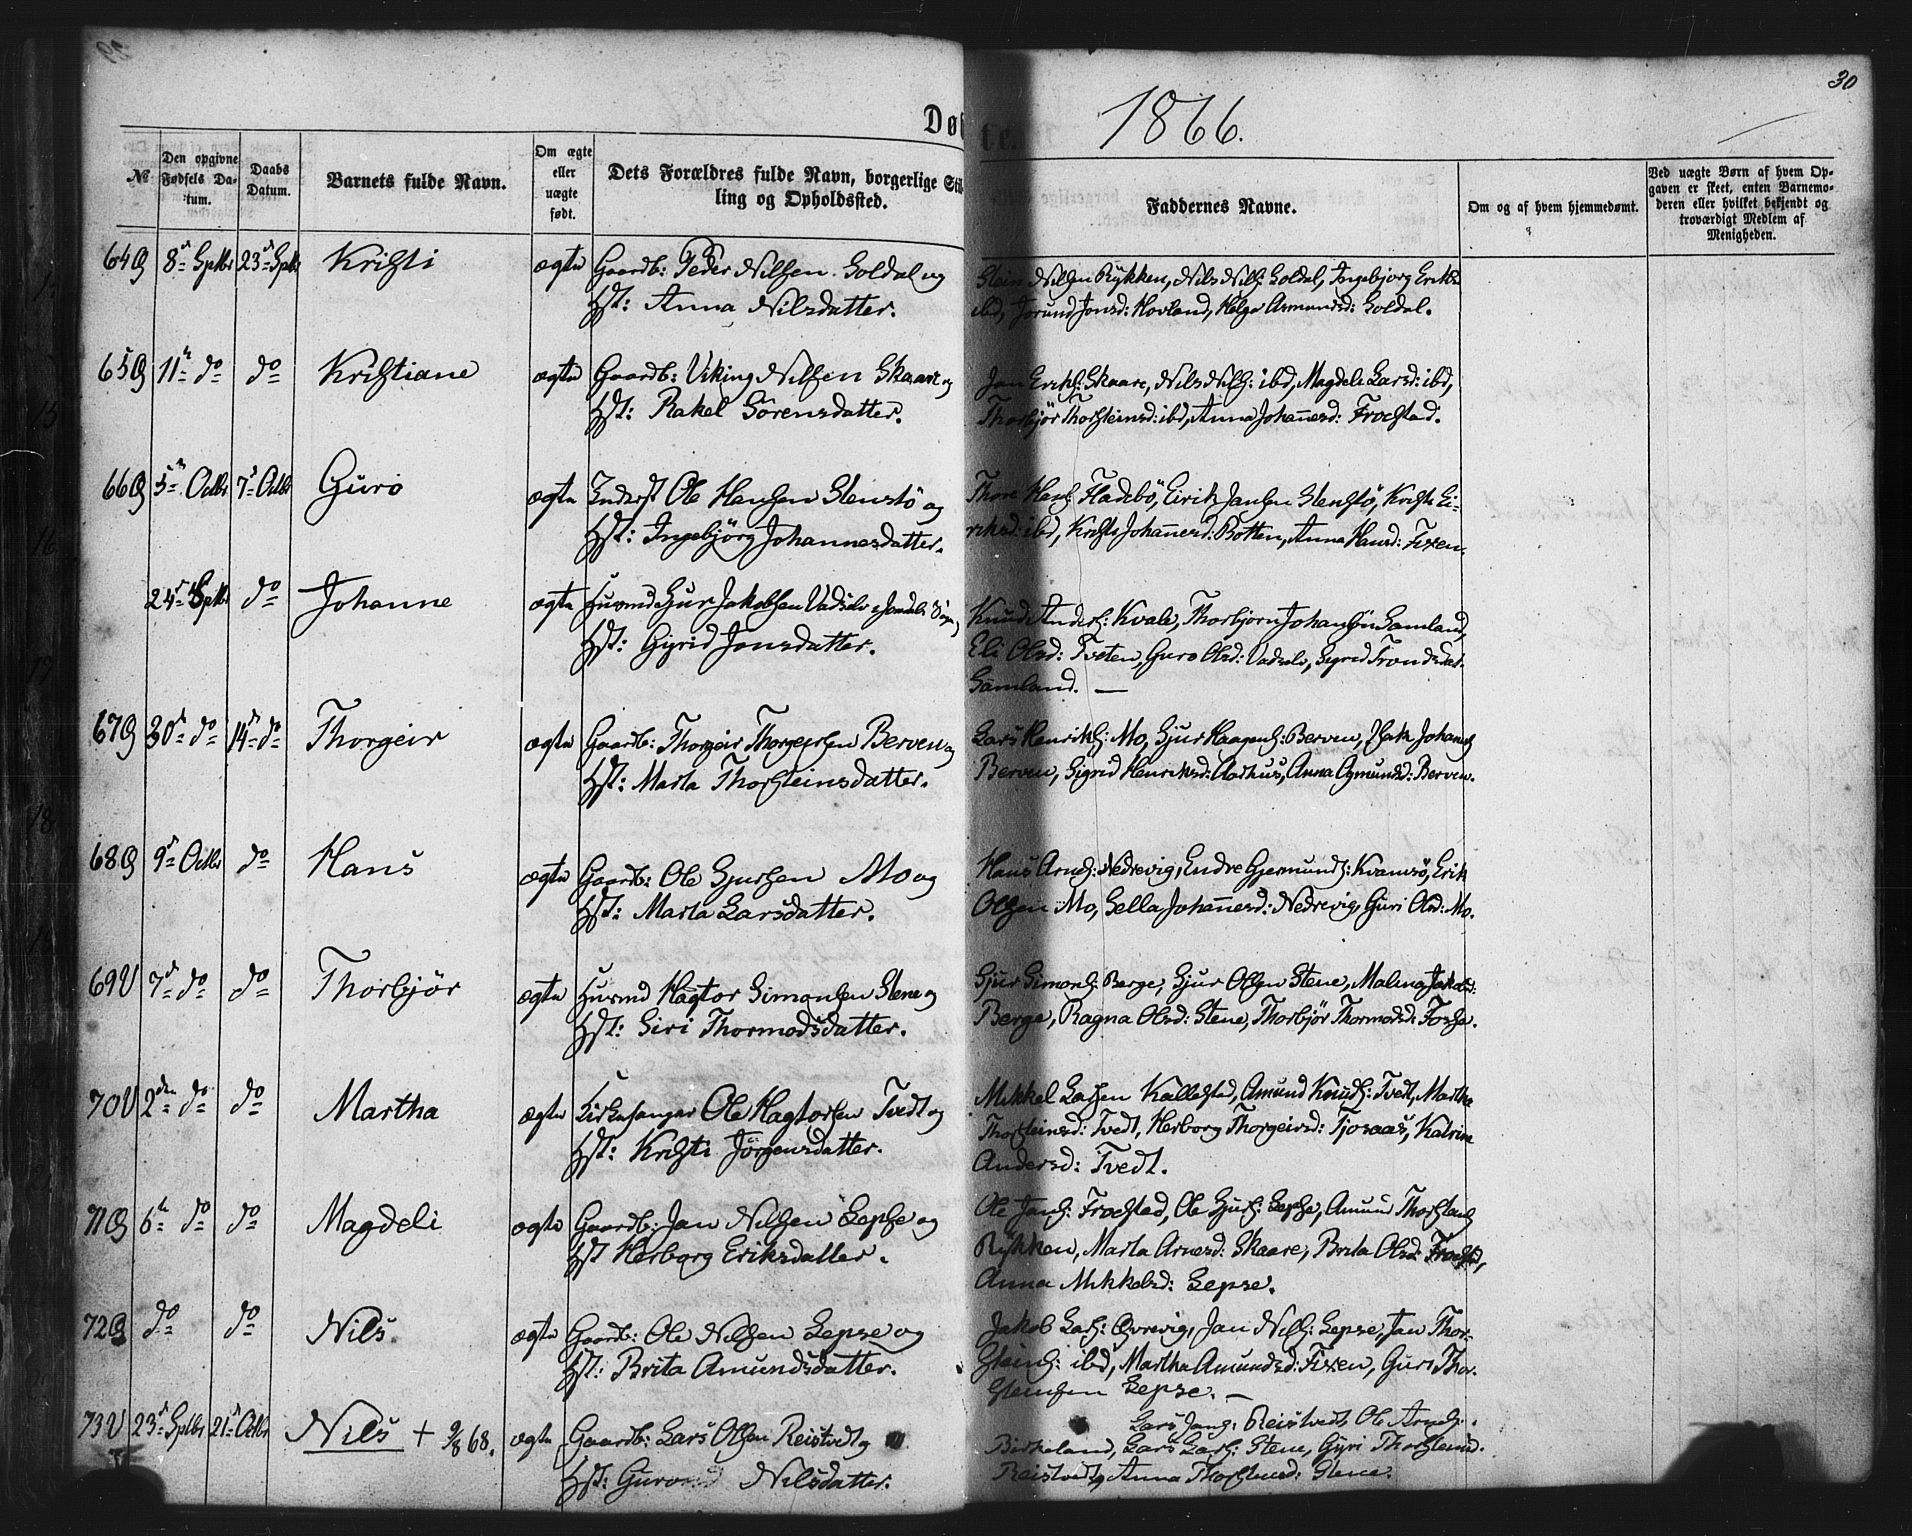 30
Døbte. 1866.
№
Den opgivne Fødsels Datum.
Daabs Datum.
Barnets fulde Navn.
Om ægte eller uægte født.
Dets Forældres fulde Navn, borgerlige Stilling og Opholdssted.
Faddernes Navne.
Om og af hvem hjemmedømt.
Ved uægte Børn af hvem Opgaven er skeet, enten Barnemoderen eller hvilket bekjendt og troværdigt Medlem af Menigheden.
64 8de Sptbr 23de Sptbr Kristi ægte Gaardb: Peder Nilsen Soldal og
Hst: Anna Nilsdatter.
Stein Nilsen Rykken, Nils Nils: Soldal, Ingebjorg Eriksd
ibd, Jorund Jonsd: Hovland, Helga Asmundsd: Soldal.
65 11te do do Kristiane ægte Gaardb: Viking Nilsen Skaare og
Hst: Rakel Sørensdatter.
Jan Eriks: Skaare, Nils Nils: ibd, Magdeli Larsd: ibd,
Thorbjør Thorsteinsd: ibd, Anna Johannesd: Froestad.
66 5te Octbr 7de Octbr Guro ægte Inderst Ole Hansen Stenstø og
Hst: Ingebjörg Johannesdatter.
Thore Hans: Fladebö, Eirik Jansen Stenstö, Kristi Ei-
riksd: ibd, Kristi Johannesd: Botten, Anna Hansd: Fixen.
24de Sptbr do Johanne ægte Husmd Sjur Jakobsen Vadselv i Jondals Sogn
Hst: Gyrid Jonsdatter.
Knud Anders: Kvale, Thorbjorn Johansen Samland,
Eli Olsd: Tveten, Guro Olsd: Vadselv, Sigrid Trondsdat.
Samland. —
67 30de do 14de do Thorgeir ægte Gaardb: Thorgeir Thorgeirsen Berven og
Hst: Marta Thorsteinsdatter.
Lars Henriks: Mo, Sjur Haagens: Berven, Isak Johans
Berven, Sigrid Henriksd: Aarhus, Anna Ogmundsd: Berven.
68 9de Octbr do Hans ægte Gaardb: Ole Sjursen Mo og
Hst: Marta Larsdatter.
Hans Arnes: Nedrevig, Endre Gjermunds: Kvamsö, Erik
Olsen Mo, Sella Johannesd: Nedrevig, Guri Olsd: Mo.
69 U 7de do do Thorbjør ægte Husmd Hagtor Simonsen Stene og
Hst: Siri Thormodsdatter.
Sjur Simons: Berge, Sjur Olsen Stene, Malina Jakobsd:
Berge, Ragna Olsd: Stene, Thorbjör Thormodsd: Fosse.
70 U 2den do do Martha ægte Kirkesanger Ole Hagtorsen Tvedt og
Hst: Kristi Jörgensdatter.
Mikkel Larsen Kallestad, Amund Knuds: Tvedt, Martha
Thorsteinsd: Tvedt, Herborg Thorgeirsd: Tjosaas, Katrine
Andersd: Tvedt.
71 6te do do Magdeli ægte Gaardb: Jan Nilsen Lepse og
Hst Herborg Eriksdatter.
Ole Jans: Froestad, Ole Sjurs: Lepse, Amund Thorsteins
Rykken, Marta Arnesd: Skaare, Brita Olsd: Froestad,
Anna Mikkelsd: Lepse.
72 do do Nils. ægte Gaardb: Ole Nilsen Lepse og
Hst: Brita Amundsdatter.
Jakob Lars: Øvrevig, Jan Nils: Lepse, Jan Thor-
steins: ibd, Martha Amundsd: Fixen, Guri Thor-
steinsen Lepse. —
73 U 23de Sptbr 21de Octbr Nils + 9/8 68. ægte Gaardb: Lars Olsen Reistvedt og
Hst: Guro Nilsdatter.
Lars Jans: Reistvedt, Ole Arnes:
Birkeland, Lars Lars: Stene, Gyri Thorsteinsd:
Reistvedt, Anna Thorsteinsd: Stene.